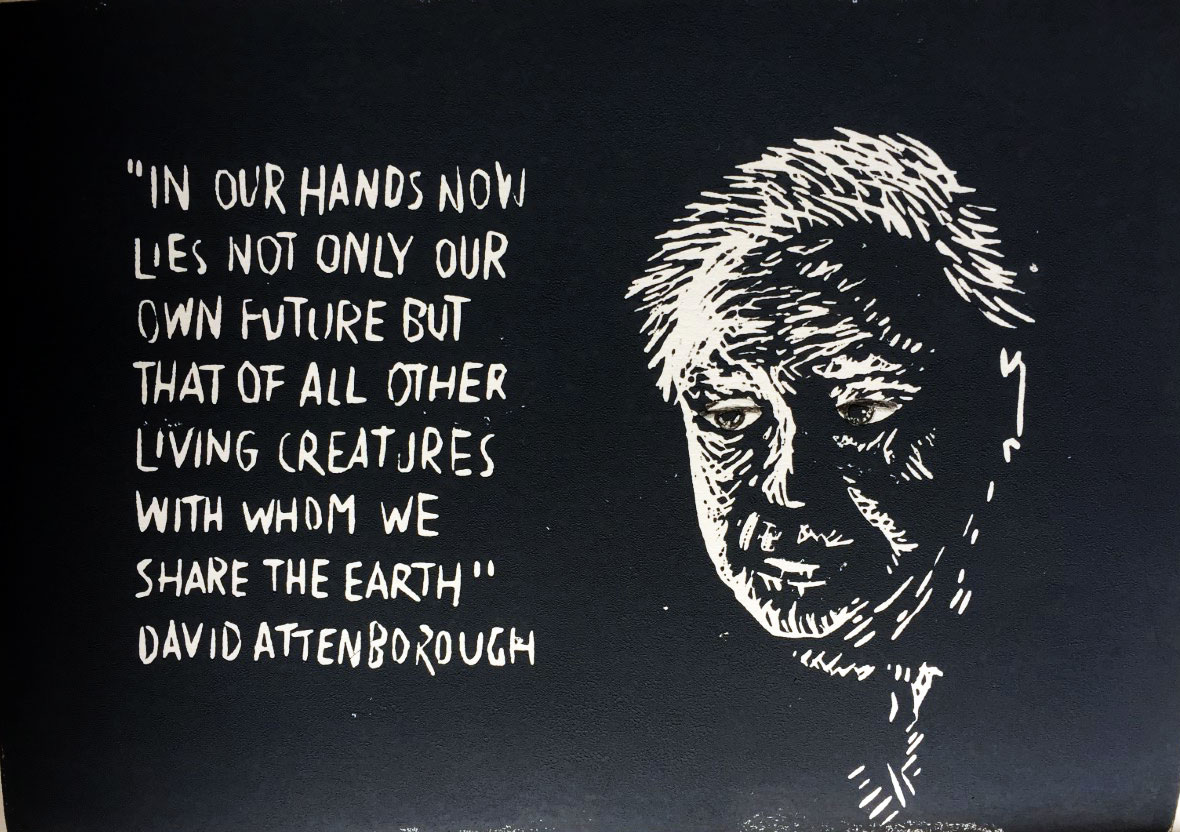 "IN OUR HANDS NOW
LIES NOT ONLY OUR
OWN FUTURE BUT
THAT OF ALL OTHER
LIVING CREATURES
WITH WHOM WE
SHARE THE EARTH"
DAVID ATTENBOROUGH